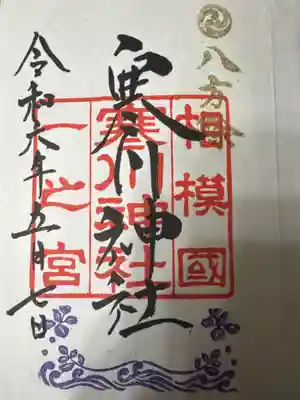 八方除
相模國
寒川神社
寒川神社
一之宮
令和六年五月七日